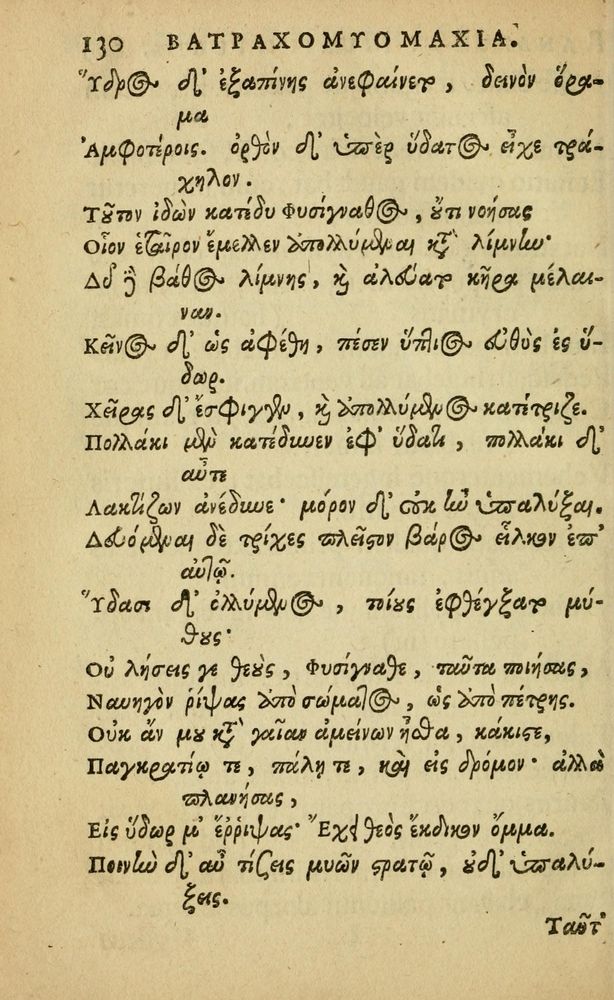 130 ΒΑΤΡΑΧΟΜΥΟΜΑΧΙΑ.
Ὕδρος δ' ἐξαπίνης ἀνεφαίνετο, δεινὸν ὅρα-
μα
Ἀμφοτέροις. ὀρθὸν δ' ὑπὲρ ὕδατος εἶχε τρά-
χηλον.
Τοῦτον ἰδὼν κατέδυ Φυσίγναθος, οὔτι νοήσας
Οἷον ἑταῖρον ἔμελλεν ἀπολλύμεναι κατὰ λίμνην·
Δῦ ἢ βάθος λίμνης, καὶ ἀλεύατο κῆρα μέλαι-
ναν.
Κεῖνος δ' ὡς ἀφέθη, πέσεν ὕπτιος εὐθὺς ἐς ὕ-
δωρ.
Χεῖρας δ' ἔσφιγγεν, καὶ ἀπολλύμενος κατέτριζε.
Πολλάκι μὲν κατέδυνεν ἐφ' ὕδατι, πολλάκι δ'
αὖτε
Λακτίζων ἀνέδυνε· μόρον δ' οὐκ ἦν ὑπαλύξαι.
Δευόμεναι δὲ τρίχες πλεῖστον βάρος εἷλκον ἐπ'
αὐτῷ.
Ὕδασι δ' ὀλλύμενος, ποίους ἐφθέγξατο μύ-
θους·
Οὐ λήσεις γε θεοὺς, Φυσίγναθε, ταῦτα ποιήσας,
Ναυηγὸν ῥίψας ἀπὸ σώματος, ὡς ἀπὸ πέτρης.
Οὐκ ἄν μου κατὰ γαῖαν ἀμείνων ἦσθα, κάκιστε,
Παγκρατίῳ τε, πάλῃ τε, καὶ εἰς δρόμον· ἀλλὰ
πλανήσας,
Εἰς ὕδωρ μ' ἔῤῥιψας· Ἔχει θεὸς ἔκδικον ὄμμα.
Ποινὴν δ' αὖ τίσεις μυῶν στρατῷ, οὐδ' ὑπαλύ-
ξεις.
Ταῦτ'